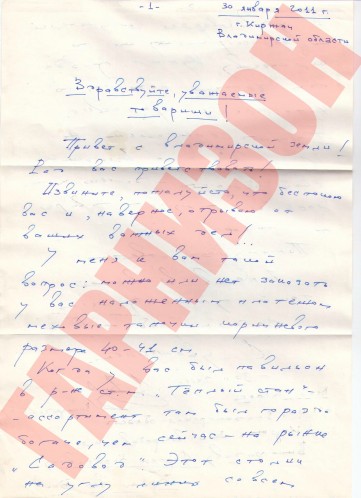 -1-
30 января 2011 г.
г. Киржач
Владимирской области
Здравствуйте, уважаемые
товарищи!
Привет с владимирской земли!
Рад вас приветствовать!
Извините, пожалуйста, что беспокою
вас и, наверное, отрываю от
ваших важных дел!..
У меня к вам такой
вопрос: можно или нет заказать
у вас наложенным платежом
меховые тапочки коричневого
размера 40-41 см.
Когда у вас был павильон
в р-не ст.м. "Тёплый стан" -
- ассортимент там был гораздо
богаче, чем сейчас - на рынке
"Садовод". Этот столик
на углу линии совсем
ГАРНИЗОН